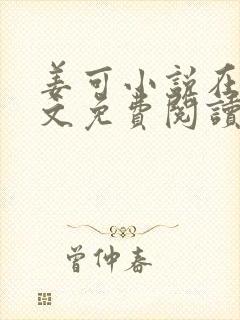 姜可小說在
文免費閱讀
曾仲春